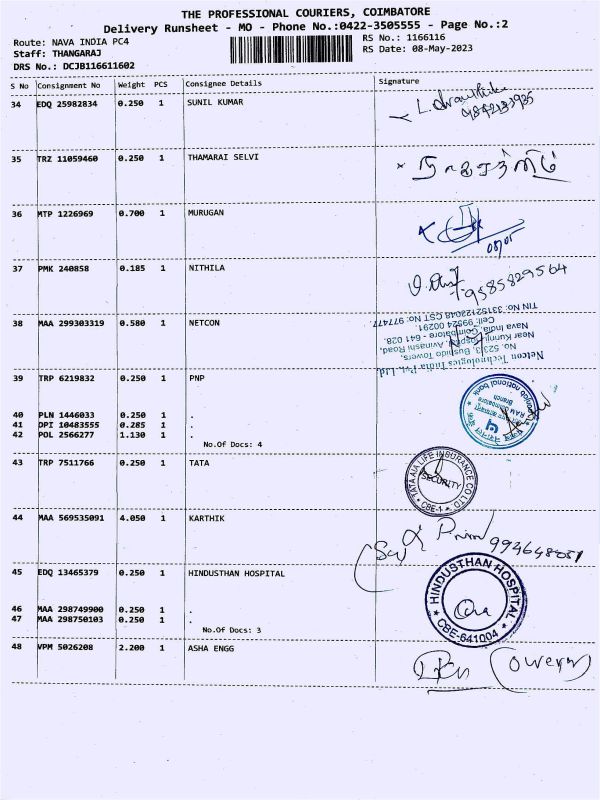 THE PROFESSIONAL COURIERS, COIMBATORE
Delivery Runsheet - MO - Phone No.:0422-3505555 - Page No.:2
Route: NAVA INDIA PC4
RS No.: 1166116
Staff: THANGARAJ
RS Date: 08-May-2023
DRS No.: DCJB116611602
S No Consignment No Weight PCS Consignee Details Signature
34 EDQ 25982834 0.250 1 SUNIL KUMAR
9842133935
35 TRZ 11059460 0.250 1 THAMARAI SELVI
36 MTP 1226969 0.700 1 MURUGAN
08/05
37 PMK 240858 0.185 1 NITHILA
9585829564
38 MAA 299303319 0.580 1 NETCON
Netcon Technologies India Pvt. Ltd
No. 523/3, Bushido Towers,
Near Kurinji Hospital, Avinashi Road,
Nava India, Coimbatore - 641 028.
Cell: 99524 00291
TIN No: 33152122048 CST No: 977477
39 TRP 6219832 0.250 1 PNP
punjab national bank
40 PLN 1446033 0.250 1 .
41 DPI 10483555 0.285 1 .
42 POL 2566277 1.130 1 .
No.Of Docs: 4
43 TRP 7511766 0.250 1 TATA
TATA AIA LIFE INSURANCE CO LTD
SECURITY
CBE-1
44 MAA 569535091 4.050 1 KARTHIK
45 EDQ 13465379 0.250 1 HINDUSTHAN HOSPITAL
HINDUSTHAN HOSPITAL
CBE-641004
46 MAA 298749900 0.250 1 .
47 MAA 298750103 0.250 1 .
No.Of Docs: 3
48 VPM 5026208 2.200 1 ASHA ENGG